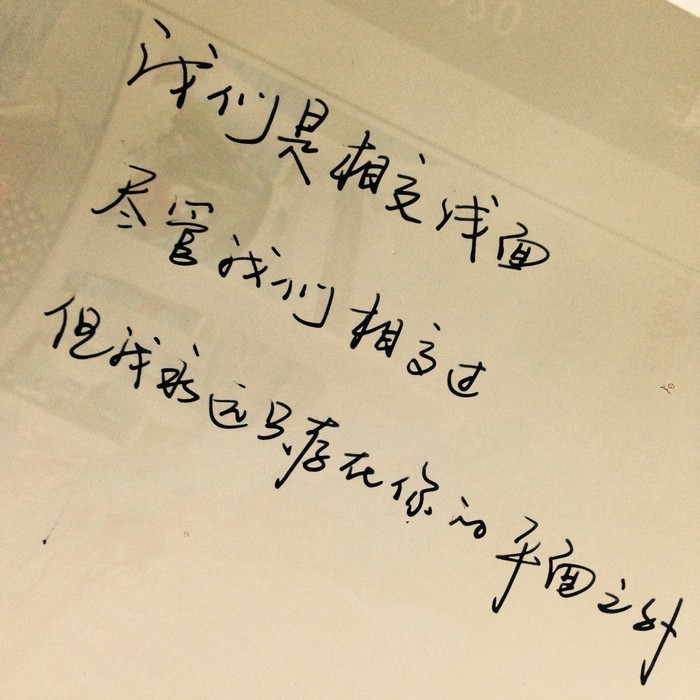 我们是相交线面
尽管我们相交过
但我永远只存在你的平面之外